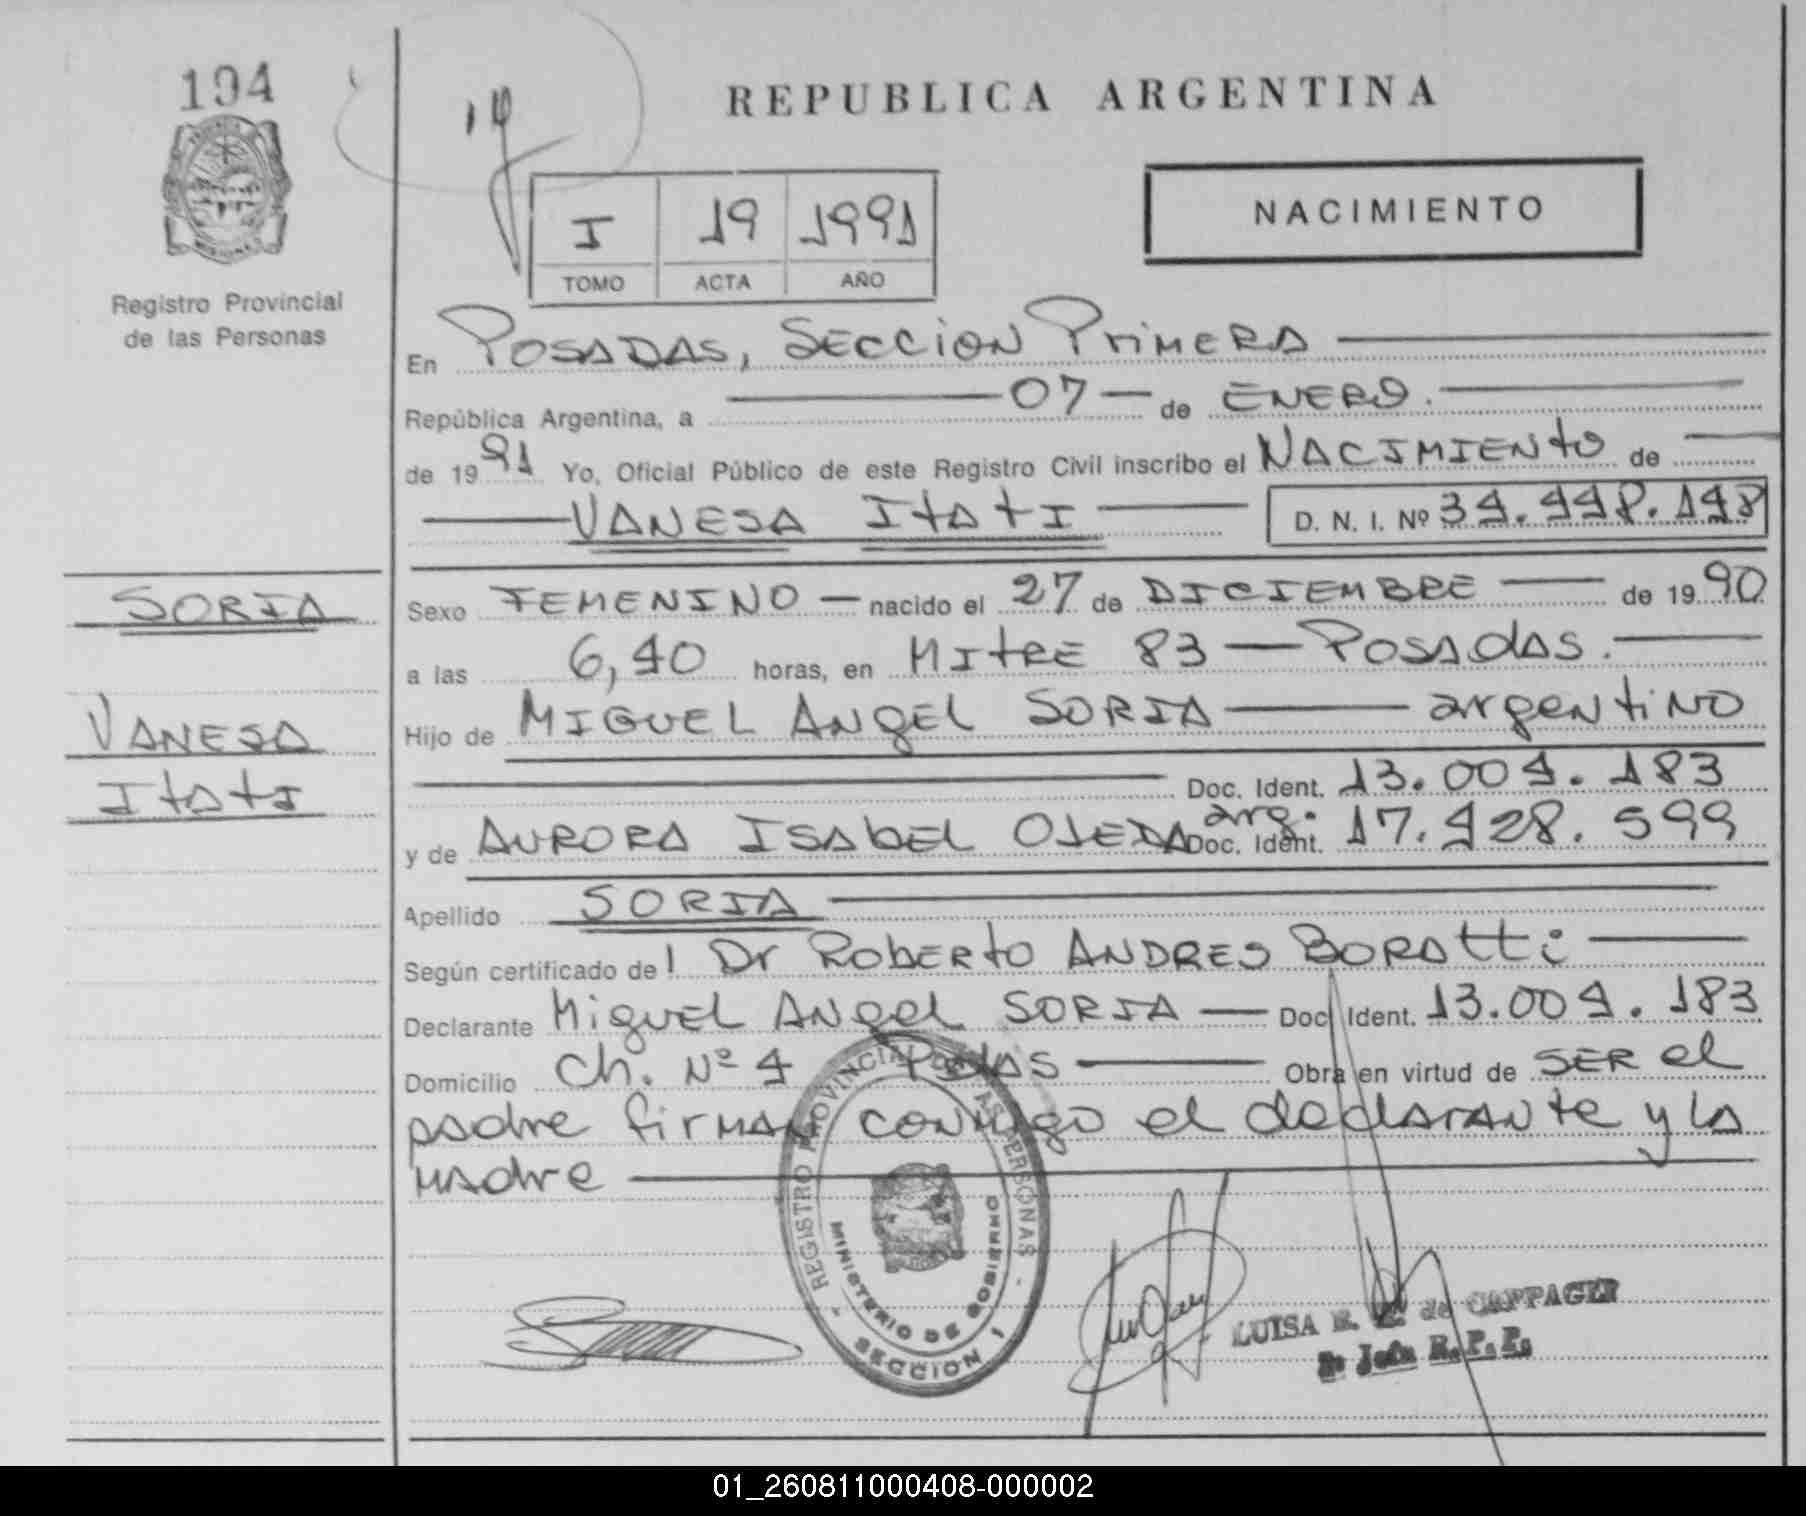 194
Registro Provincial
de las Personas
SORIA
VANESA
ITATI
14
REPUBLICA ARGENTINA
I 19 1991
TOMO ACTA AÑO
NACIMIENTO
En POSADAS, SECCION PRIMERA
República Argentina, a 07 de ENERO.
de 1991 Yo, Oficial Público de este Registro Civil inscribo el NACIMIENTO de
VANESA ITATI D. N. I. Nº 34.448.148
Sexo FEMENINO nacido el 27 de DICIEMBRE de 1990
a las 6,40 horas, en MITRE 83 - POSADAS.
Hijo de MIGUEL ANGEL SORIA argentino
Doc. Ident. 13.004.183
y de AURORA ISABEL OJEDA arg. Doc. Ident. 17.428.599
Apellido SORIA
Según certificado del Dr ROBERTO ANDRES BORATTI
Declarante MIGUEL ANGEL SORIA Doc. Ident. 13.004.183
Domicilio Ch. Nº 4 PDAS Obra en virtud de SER el
padre firman conmigo el declarante y la
madre
REGISTRO PROVINCIAL DE LAS PERSONAS
MINISTERIO DE GOBIERNO
SECCION 1
LUISA de CAPPAGER
Jefa R.P.P.
01_260811000408-000002